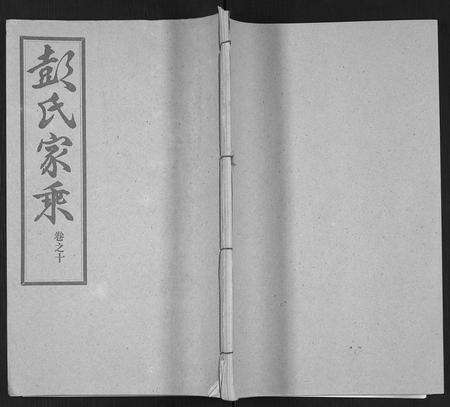 彭氏家乘
卷之十